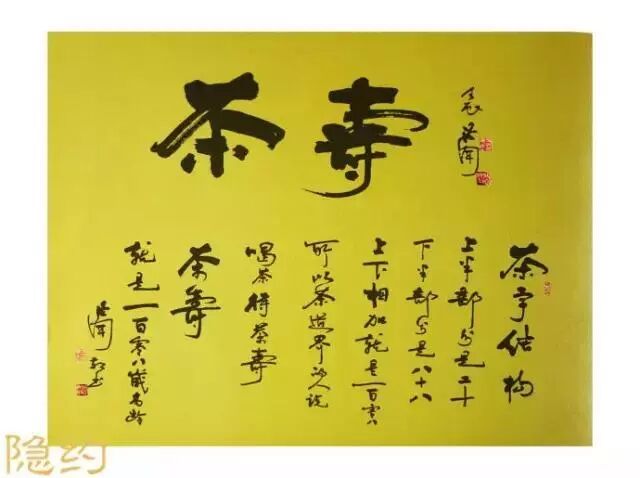 茶壽
茶字结构
上半部分是二十
下半部分是八十八
上下相加就是一百零八
所以茶道界的人说
喝茶得茶寿
茶寿
就是一百零八歲高龄
隐约